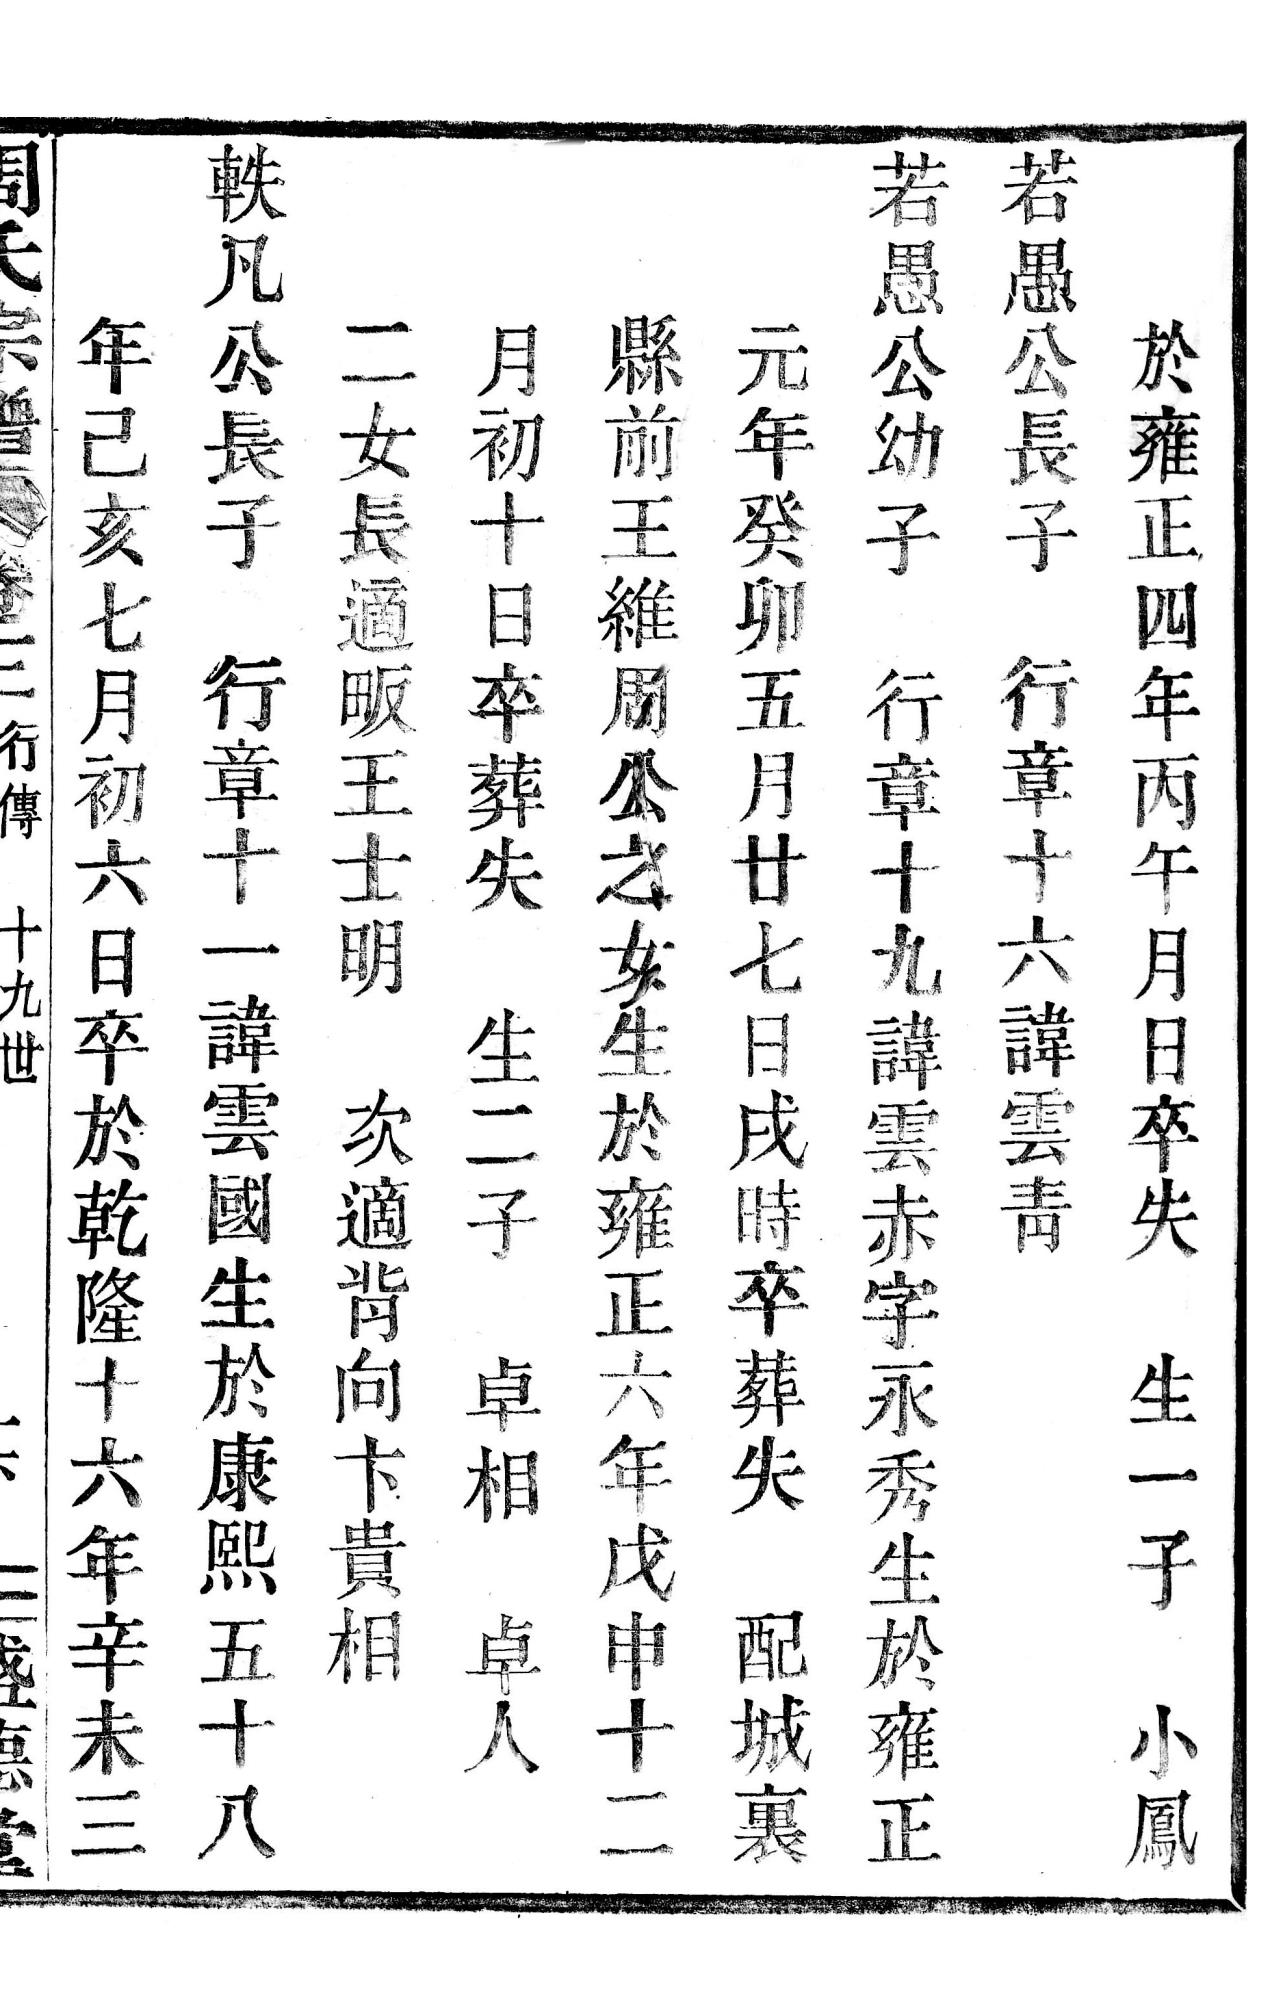 於雍正四年丙午月日卒失　生一子　小鳳
若愚公長子　行章十六諱雲靑
若愚公幼子　行章十九諱雲赤字永秀生於雍正
元年癸卯五月廿七日戌時卒葬失　配城裏
縣前王維周公之女生於雍正六年戊申十二
月初十日卒葬失　生二子　卓相　卓人
二女長適畈王士明　次適背向卞貴相
軼凡公長子　行章十一諱雲國生於康熙五十八
年己亥七月初六日卒於乾隆十六年辛未三
周氏宗譜　卷二　行傳　十九世　盛德堂